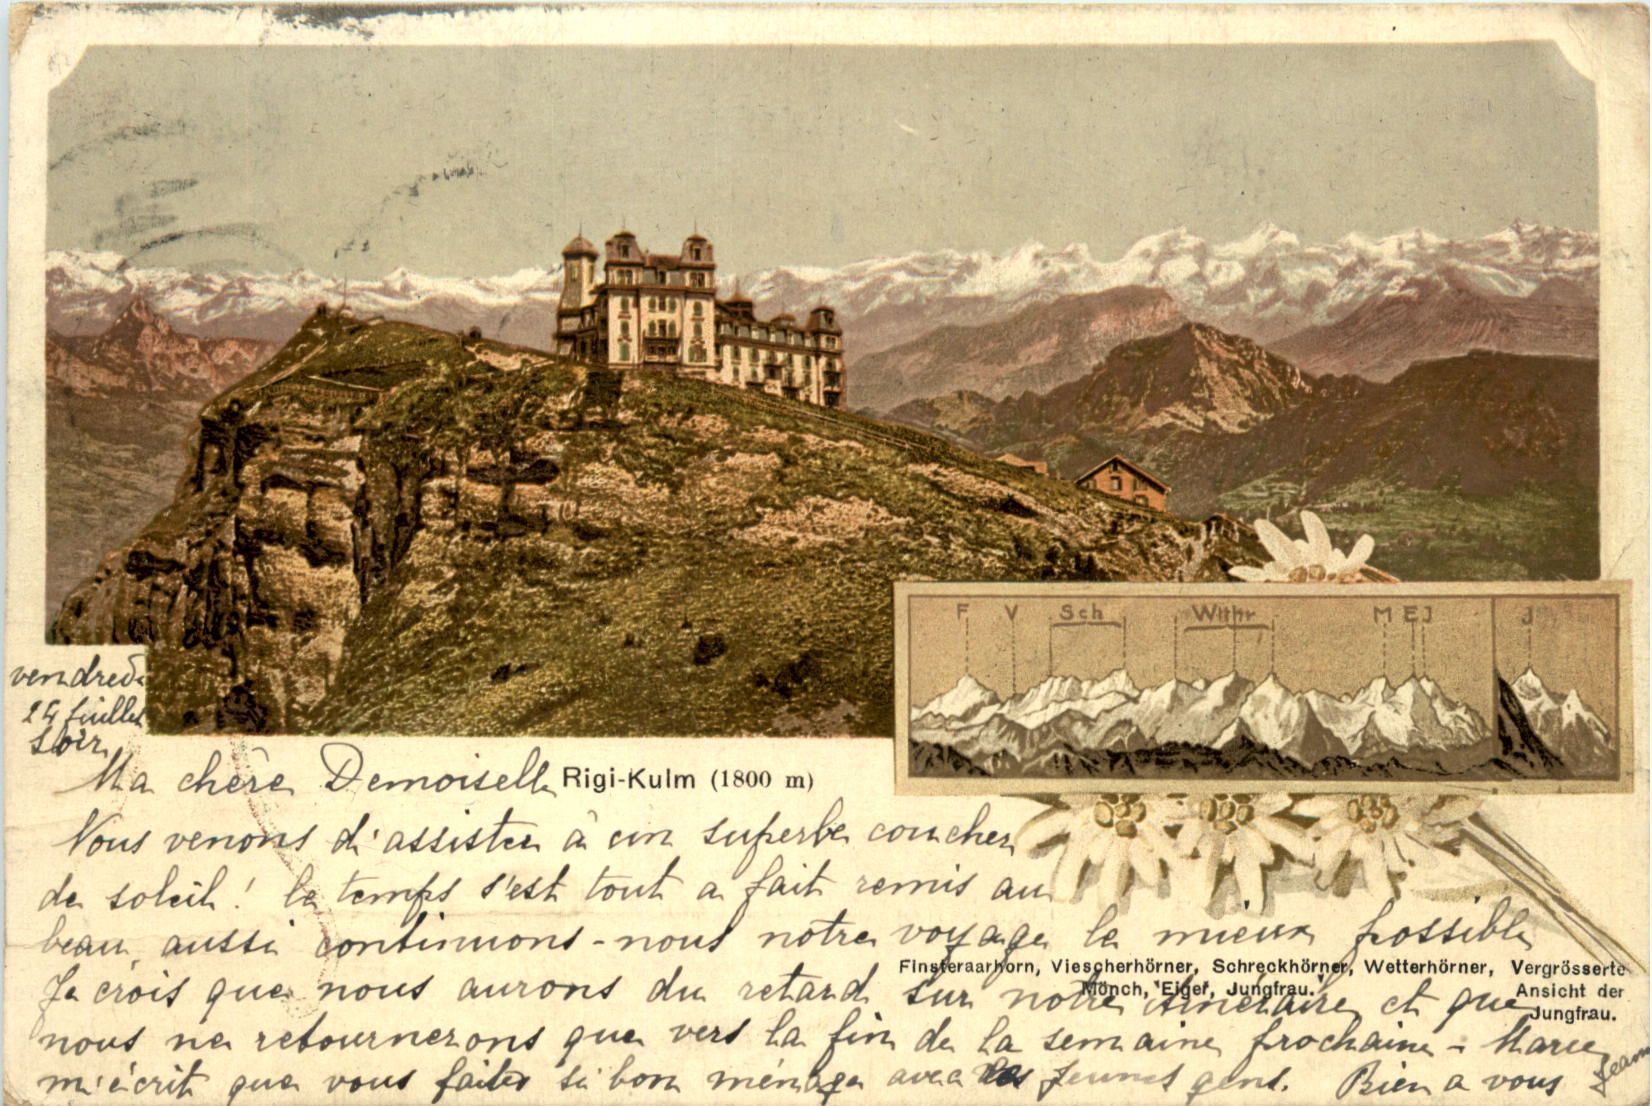 F V Sch Wtthr M E J J
vendredi
24 juillet
soir
Ma chère Demoiselle
Rigi-Kulm (1800 m)
Nous venons d'assister à un superbe coucher
de soleil ! le temps s'est tout a fait remis au
beau, aussi continuons-nous notre voyage le mieux possible
Finsteraarhorn, Viescherhörner, Schreckhörner, Wetterhörner,
Mönch, Eiger, Jungfrau.
Vergrösserte
Ansicht der
Jungfrau.
Je crois que nous aurons du retard sur notre itineraire et que
nous ne retournerons que vers la fin de la semaine prochaine - Marie
m'écrit que vous faites si bon ménage avec les jeunes gens. Bien a vous